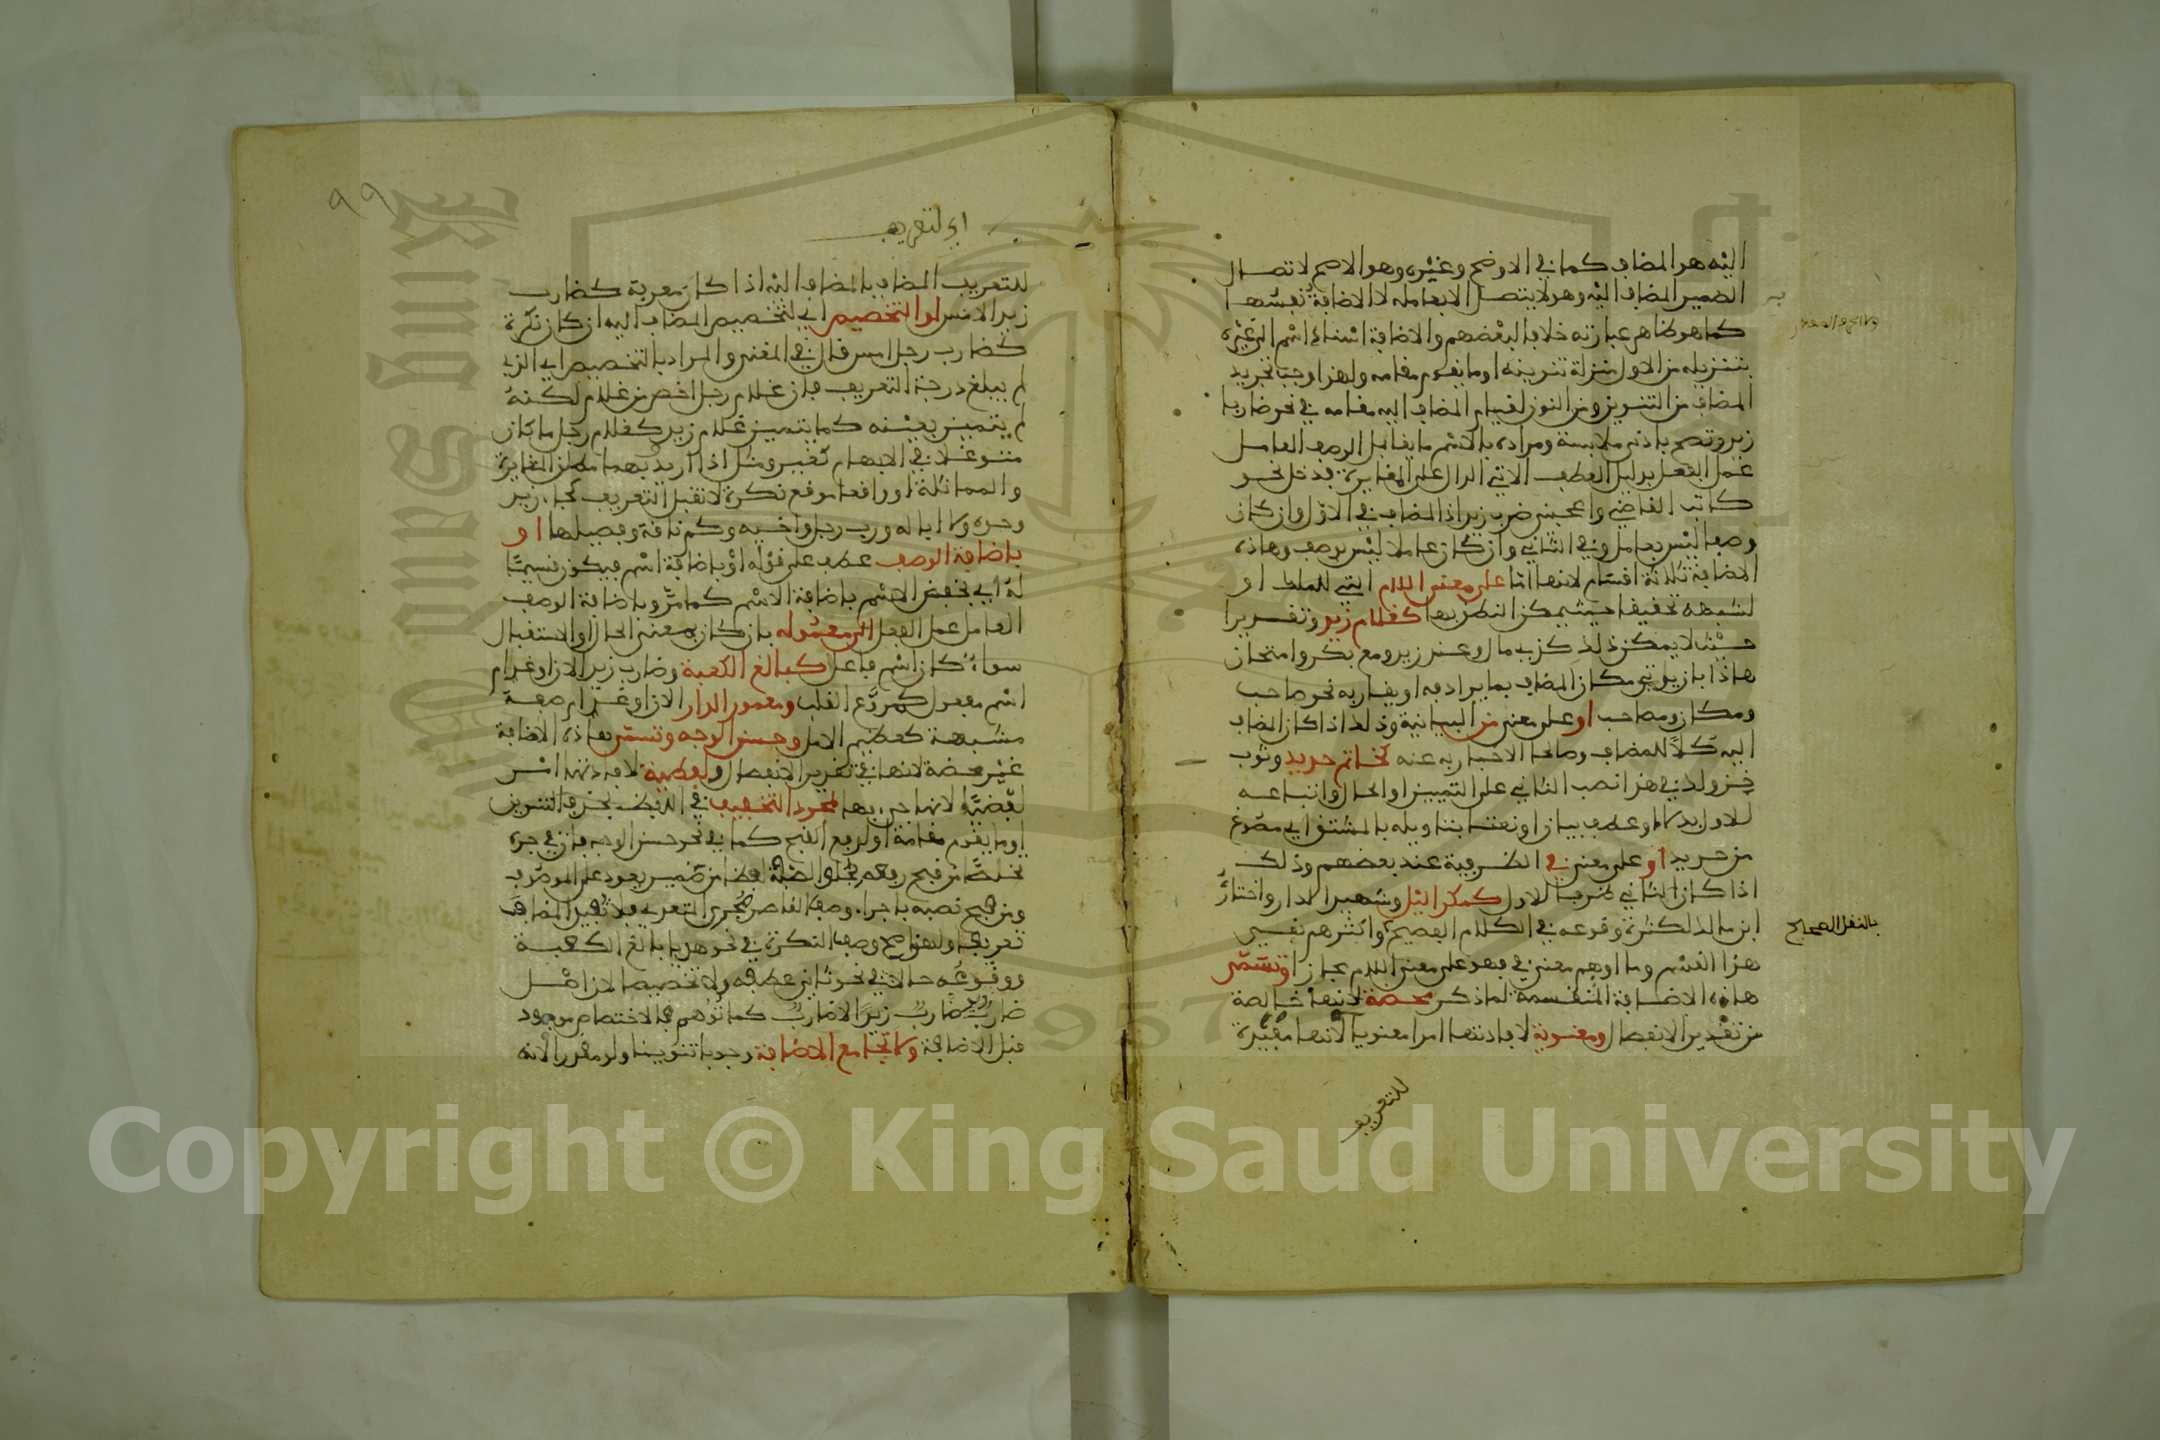 اليه هو المضاف كما في الاوضح وغيره وهو الاصح لاتصال
الضمير المضاف اليه وهو لا يتصل الا بعامله لا الاضافة نفسها
كما هو ظاهر عبارته خلافا لبعضهم والاضافة اسناد اسم الى غيره
بتنزيله من الاول منزلة تنوينه او ما يقوم مقامه ولهذا وجب تجريد
المضاف من التنوين ومن النون لقيام المضاف اليه مقامه في نحو ضاربا
زيد وتصح بادنى ملابسة ومراده بالاسم ما يقابل الوصف العامل
عمل الفعل بدليل العطف الاتي الدال على المغايرة فدخل نحو
كاتب القاضي واعجبني ضرب زيد اذ المضاف في الاول وان كان
وصفا ليس بعامل وفي الثاني وان كان عاملا ليس بوصف وهاذه
الاضافة ثلاثة اقسام لانها اما على معنى اللام التي للملك او
لشبهه تحقيقا حيث يمكن النطق بها كغلام زيد وتقديرا
حيث لا يمكن ذلك كذي مال وعند زيد ومع بكر وامتحان
هاذا بان ياتي مكان المضاف بما يرادفه او يقاربه نحو صاحب
ومكان ومصاحب او على معنى من البيانية وذلك اذا كان المضاف
اليه كلا للمضاف وصالحا الاخبار به عنه كخاتم حديد وثوب
خز ولك في هذا نصب الثاني على التمييز او الحال واتباعه
للاول بدلا او عطف بيان او نعتا بتاويله بالمشتق اي مصوغ
من حديد او على معنى في الظرفية عند بعضهم وذلك
اذا كان الثاني ظرفا للاول كمكر الليل وشهيد الدار واختار
ابن مالك لكثرة وقوعه في الكلام الفصيح واكثرهم نفى
بالنقل الصحيح
هذا القسم وما اوهم معنى في فهو على معنى اللام مجازا وتسمى
هاذه الاضافة المنقسمة لما ذكر محضة لانها خالصة
من تقدير الانفصال ومعنوية لافادتها امرا معنويا لانها مفيدة
للتعريف
٩٩
اي لتعريف
للتعريف المضاف بالمضاف اليه اذا كان معرفة كضارب
زيد الامس او التخصيص اي لتخصيص المضاف اليه ان كان نكرة
كضارب رجل امس قال في المغني والمراد بالتخصيص اي الذي
لم يبلغ درجة التعريف فان غلام رجل اخص من غلام لكنه
لم يتميز بعينه كما يتميز غلام زيد كغلام رجل ما كان
متوغلا في الابهام كغير ومثل اذا اريد بهما مطلق المغايرة
والمماثلة او واقعا موقع نكرة لا تقبل التعريف كجاء زيد
وحده ولا ابا له ورب رجل واخيه وكم ناقة وفصيلها او
باضافة الوصف عطف على قوله او باضافة اسم فيكون قسيما
له اي يخفض الاسم باضافة الاسم كما مر وباضافة الوصف
العامل عمل الفعل الى معموله بان كان بمعنى الحال او الاستقبال
سواء كان اسم فاعل كبالغ الكعبة وضارب زيد الان او غدا ام
اسم مفعول كمروع القلب ومعمور الدار الان او غدا ام صفة
مشبهة كعظيم الامل وحسن الوجه وتسمى هاذه الاضافة
غير محضة لانها في تقدير الانفصال ولفظية لافادتها امرا
لفظيا لانها جيء بها لمجرد التخفيف في اللفظ بحذف التنوين
او ما يقوم مقامه او لرفع القبح كما في نحو حسن الوجه فان في جره
تخلصا من قبح رفعه لخلو الصفة لفظا من ضمير يعود على الموصوف
ومن قبح نصبه باجراء وصف القاصر مجرى المتعدي فلا تفيد المضاف
تعريفا ولهذا صح وصف النكرة في نحو هديا بالغ الكعبة
ووقوعه حالا في نحو ثاني عطفه ولا تخصيصا لان اصل
ضارب زيد ضارب زيدا لا ضارب كما توهم فالاختصاص موجود
قبل الاضافة ولا تجامع الاضافة وجوبا تنوينا ولو مقدرا لانه